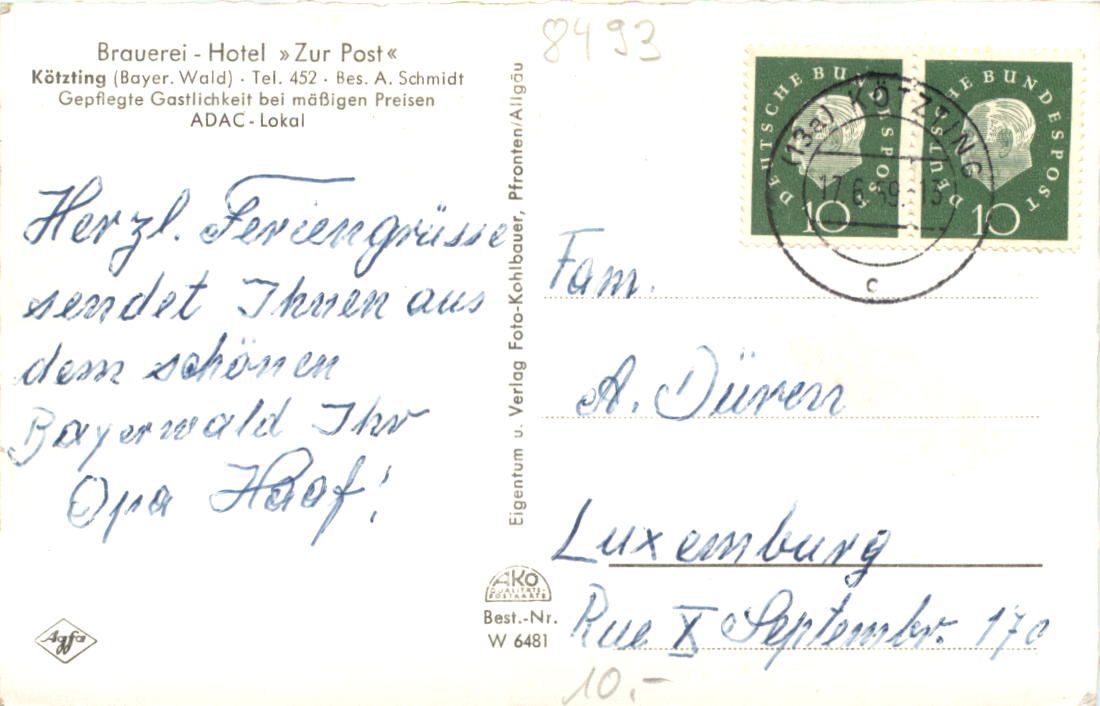 Brauerei - Hotel »Zur Post«
Kötzting (Bayer. Wald) · Tel. 452 · Bes. A. Schmidt
Gepflegte Gastlichkeit bei mäßigen Preisen
ADAC - Lokal
8493
DEUTSCHE BUNDESPOST
10
DEUTSCHE BUNDESPOST
10
(13a) KÖTZTING
17.6.59.-13
c
Herzl. Feriengrüsse
sendet Ihnen aus
dem schönen
Bayerwald Ihr
Opa Haaf!
Eigentum u. Verlag Foto-Kohlbauer, Pfronten/Allgäu
Fam.
A. Düren
Luxemburg
Rue X Septembr. 170
AKO
QUALITÄTS-
POSTKARTE
Best.-Nr.
W 6481
Agfa
10.-